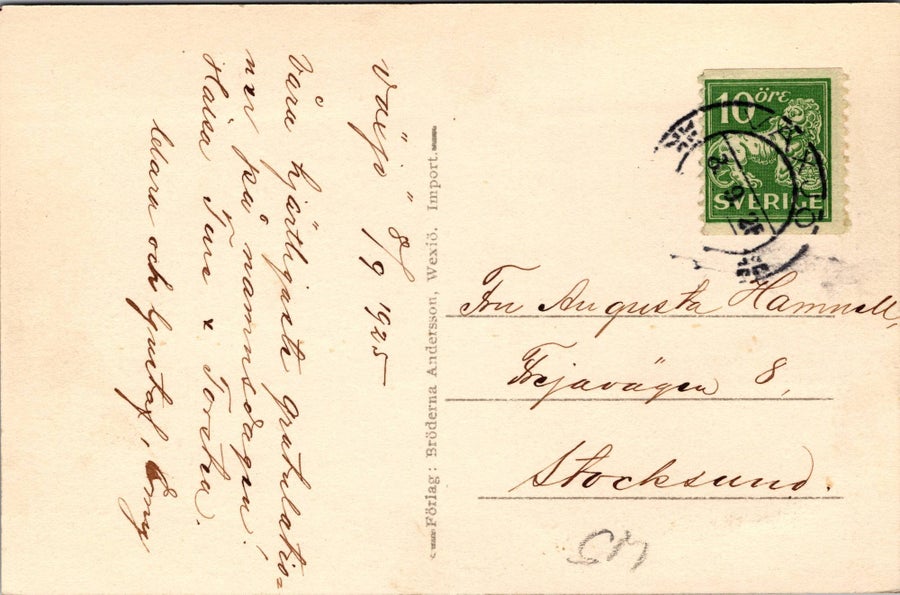 Växjö 8/9 1925
Våra hjärtligaste gratulatio-
ner på namnsdagen!
Hälsa Ture & Torsten.
Klara och Gustaf, Emy
Förlag: Bröderna Andersson, Wexiö. Import.
10 öre
SVERIGE
VÄXJÖ
8 9 25
Fru Augusta Hammell,
Frejavägen 8,
Stocksund.